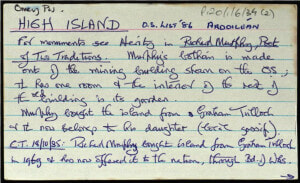 Omey Ph P20/1/6/34 (2)
HIGH ISLAND O.S. LIST '86 ARDOILEAN
For monuments see Herity in Richard Murphy, Poet
of Two Traditions. Murphy's bothain is made
out of the mining building shown on the OS.;
it has one room & the interior of the rest of
the building is its garden
Murphy bought the island from a Graham Tulloch
& it now belongs to his daughter (local gossip)
C.T. 18/10/85: Richard Murphy bought island from Graham Tulloch
in 1969 & has now offered it to the nation, through Bd. of Wks.